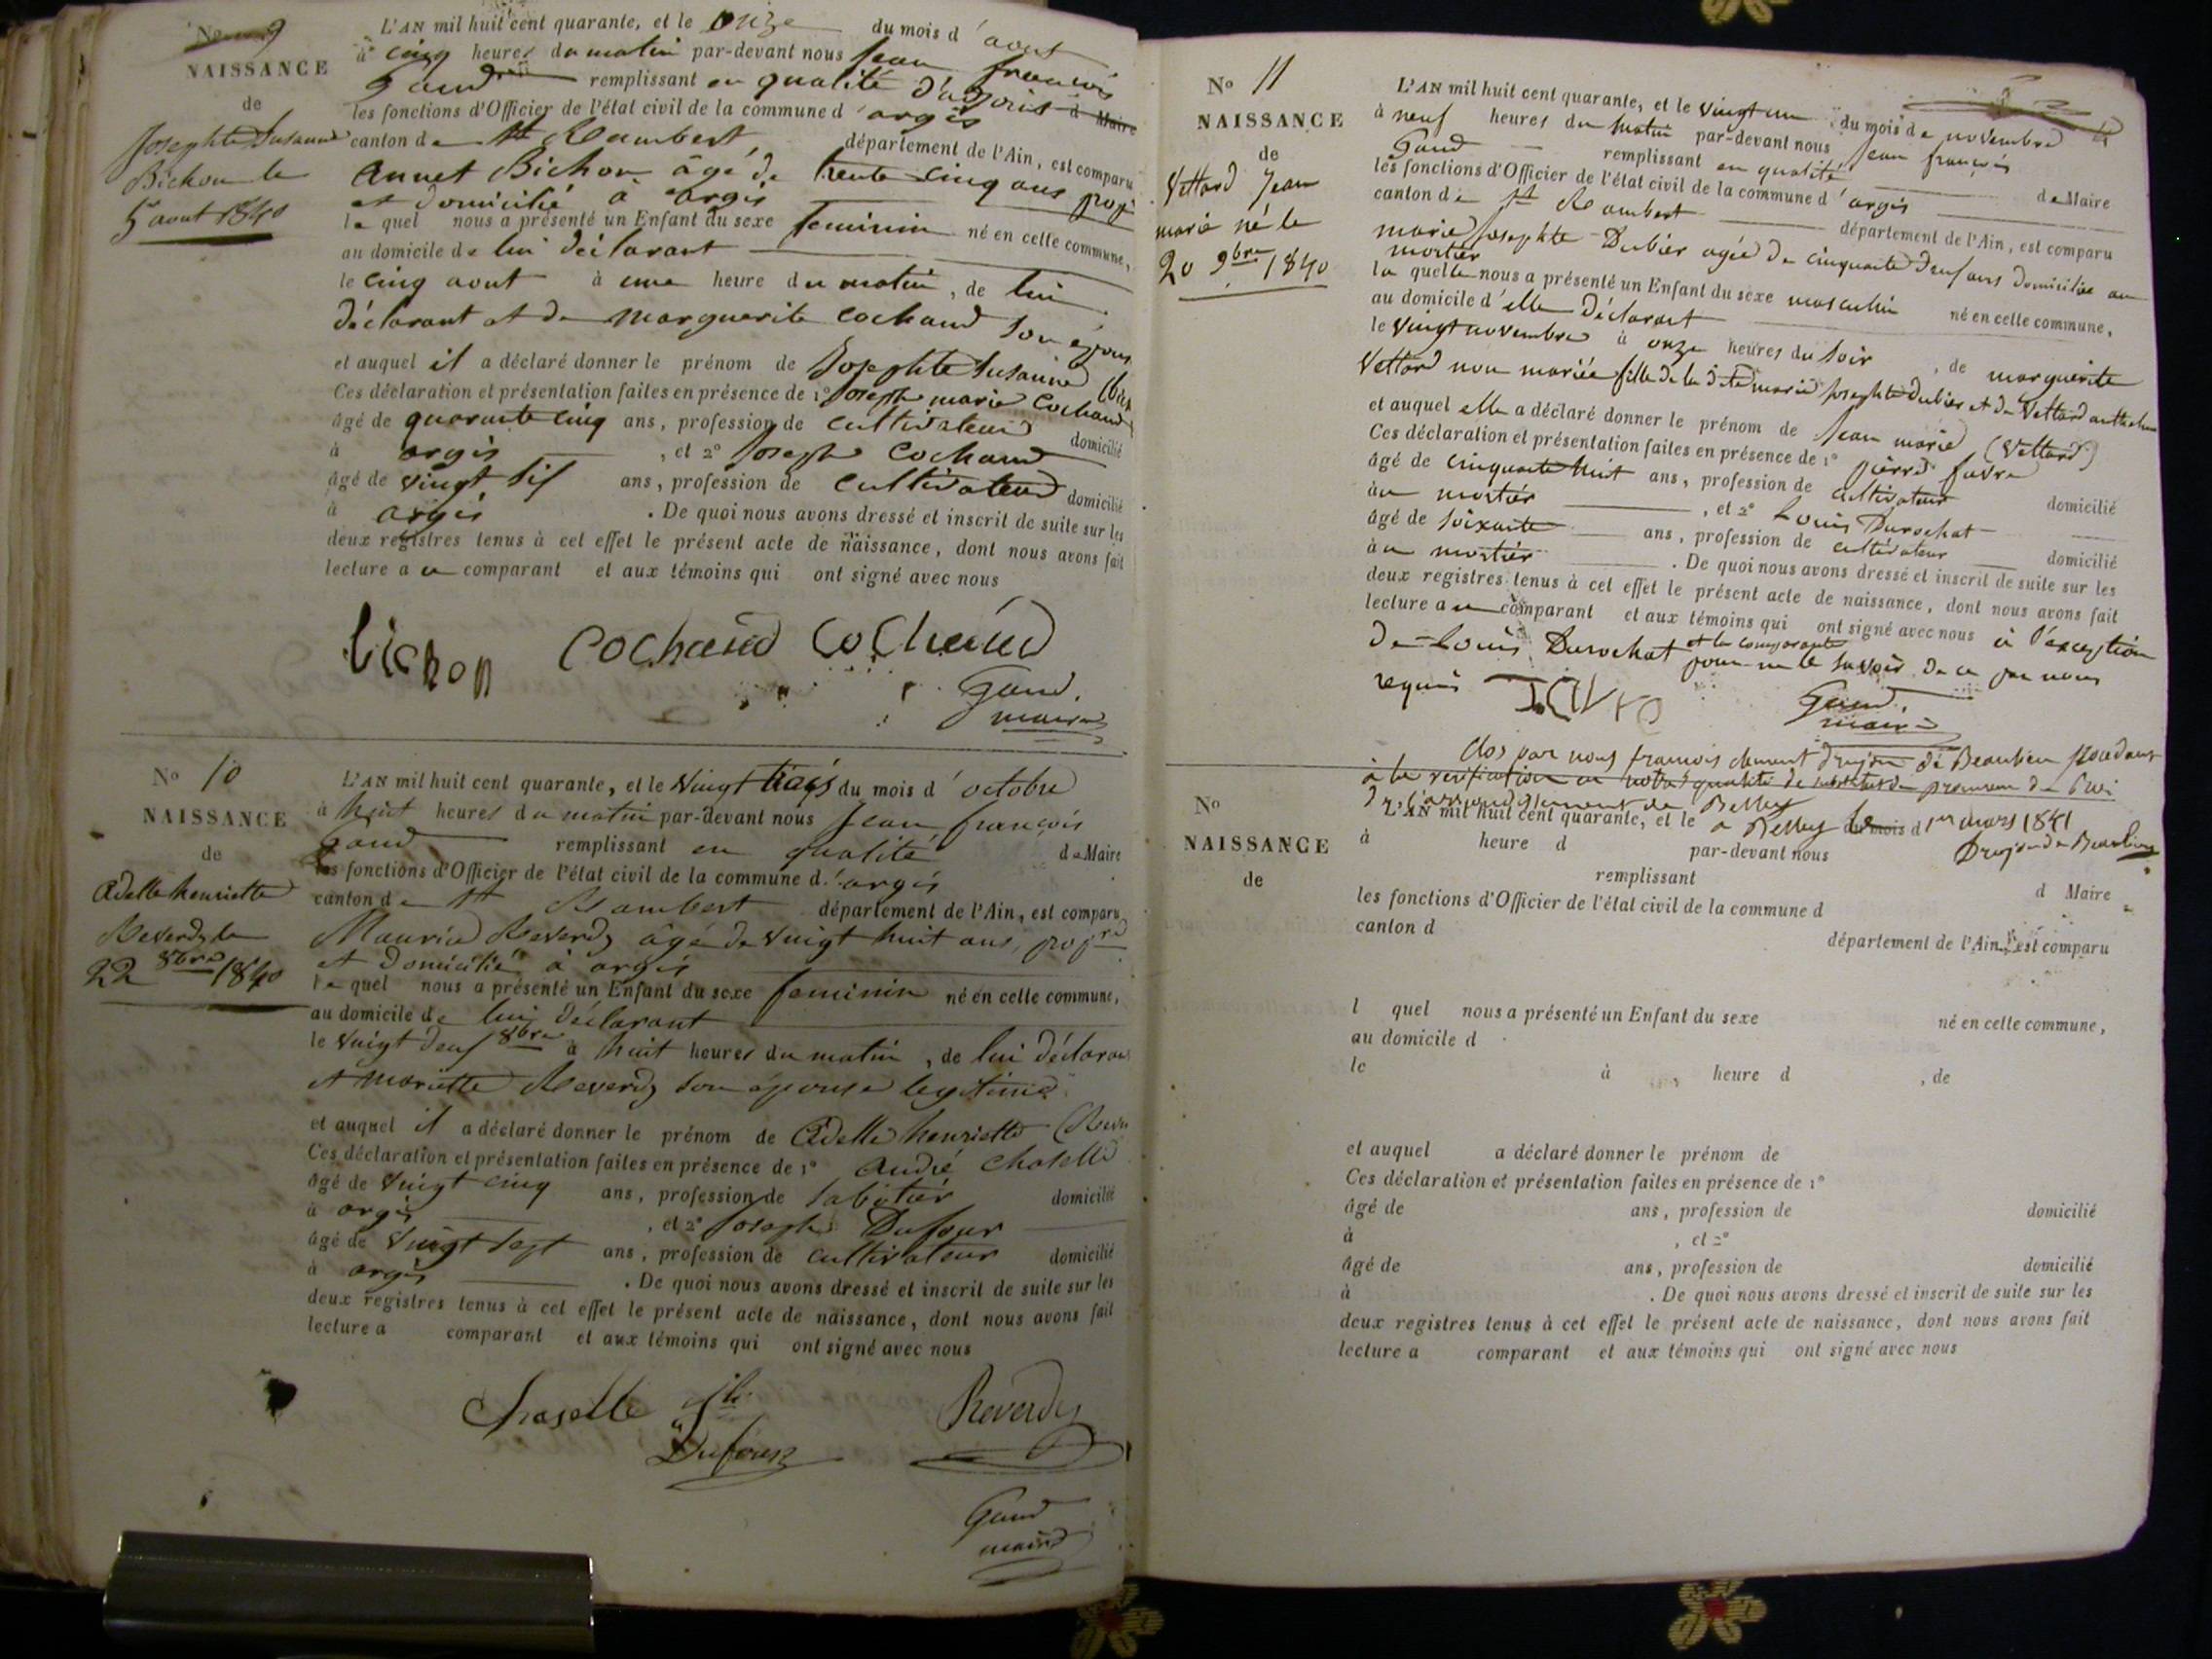 No 9
NAISSANCE
de
Josephte Susanne
Bichon le
5 aout 1840
L'AN mil huit cent quarante, et le onze du mois d'aout
à cinq heures du matin par-devant nous Jean françois
gaud remplissant en qualité d'adjoint d Maire
les fonctions d'Officier de l'état civil de la commune d'argis
canton de St Rambert, département de l'Ain, est comparu
Annet Bichon âgé de trente cinq ans prop
et domicilié à argis
le quel nous a présenté un Enfant du sexe feminin né en cette commune,
au domicile de lui déclarant
le cinq aout à une heure du matin, de lui
déclarant et de marguerite Cochand son épouse
et auquel il a déclaré donner le prénom de Josephte Susanne (bich
Ces déclaration et présentation faites en présence de 1° Joseph marie Cochand
âgé de quarante cinq ans, profession de cultivateur domicilié
à argis, et 2° Joseph Cochand
âgé de vingt six ans, profession de cultivateur domicilié
à argis. De quoi nous avons dressé et inscrit de suite sur les
deux registres tenus à cet effet le présent acte de naissance, dont nous avons fait
lecture a u comparant et aux témoins qui ont signé avec nous
bichon Cochand Cochand
Gaud.
maire
No 10
NAISSANCE
de
Adelle henriette
Reverdy le
22 8bre 1840
L'AN mil huit cent quarante, et le vingt trois du mois d'octobre
à huit heures du matin par-devant nous Jean françois
Gaud remplissant en qualité de Maire
les fonctions d'Officier de l'état civil de la commune d'argis
canton de St Rambert département de l'Ain, est comparu
Maurice Reverdy âgé de vingt huit ans, propre
et domicilié à argis
le quel nous a présenté un Enfant du sexe feminin né en cette commune,
au domicile de lui déclarant
le vingt deux 8bre à huit heures du matin, de lui déclaran
et mariette Reverdy son épouse legitime
et auquel il a déclaré donner le prénom de Adelle henriette (Rever
Ces déclaration et présentation faites en présence de 1° André Chaselle
âgé de vingt cinq ans, profession de sabotier domicilié
à argis, et 2° Joseph Dufour
âgé de vingt sept ans, profession de cultivateur domicilié
à argis. De quoi nous avons dressé et inscrit de suite sur les
deux registres tenus à cet effet le présent acte de naissance, dont nous avons fait
lecture a comparant et aux témoins qui ont signé avec nous
Chaselle Reverdy
Dufour
Gaud
maire
No 11
NAISSANCE
de
Vettard Jean
marie né le
20 9bre 1840
L'AN mil huit cent quarante, et le vingt un du mois de novembre
à neuf heures du matin par-devant nous Jean françois
Gaud remplissant en qualité de Maire
les fonctions d'Officier de l'état civil de la commune d'argis
canton de St Rambert département de l'Ain, est comparu
marie Josephte Dubier agée de cinquante deux ans domiciliée au
mortier
la quelle nous a présenté un Enfant du sexe masculin né en cette commune,
au domicile d'elle Déclarant
le vingt novembre à onze heures du soir, de marguerite
Vettard non mariée fille de la dite marie Josephte Dubier et de Vettard
et auquel elle a déclaré donner le prénom de Jean marie (Vettard)
Ces déclaration et présentation faites en présence de 1° pierre favre
âgé de cinquante huit ans, profession de cultivateur domicilié
àu mortier, et 2° Louis Durochat
âgé de soixante ans, profession de cultivateur domicilié
àu mortier. De quoi nous avons dressé et inscrit de suite sur les
deux registres tenus à cet effet le présent acte de naissance, dont nous avons fait
lecture a u comparant et aux témoins qui ont signé avec nous à l'exception
de Louis Durochat et la comparante pour ne le savoir de ce par nous
requis
Gaud.
maire
Clos par nous françois clement Drujon de Beaulieu procedant
à la verification en notre qualité de substitut du procureur du Roi
de l'arrondissement de Belley
à Belley le 1er mars 1841
Drujon de Beaulieu
No
NAISSANCE
de
L'AN mil huit cent quarante, et le du mois d
à heure d par-devant nous
remplissant d Maire
les fonctions d'Officier de l'état civil de la commune d
canton d département de l'Ain, est comparu
l quel nous a présenté un Enfant du sexe né en cette commune,
au domicile d
le à heure d , de
et auquel a déclaré donner le prénom de
Ces déclaration et présentation faites en présence de 1°
âgé de ans, profession de domicilié
à , et 2°
âgé de ans, profession de domicilié
à . De quoi nous avons dressé et inscrit de suite sur les
deux registres tenus à cet effet le présent acte de naissance, dont nous avons fait
lecture a comparant et aux témoins qui ont signé avec nous